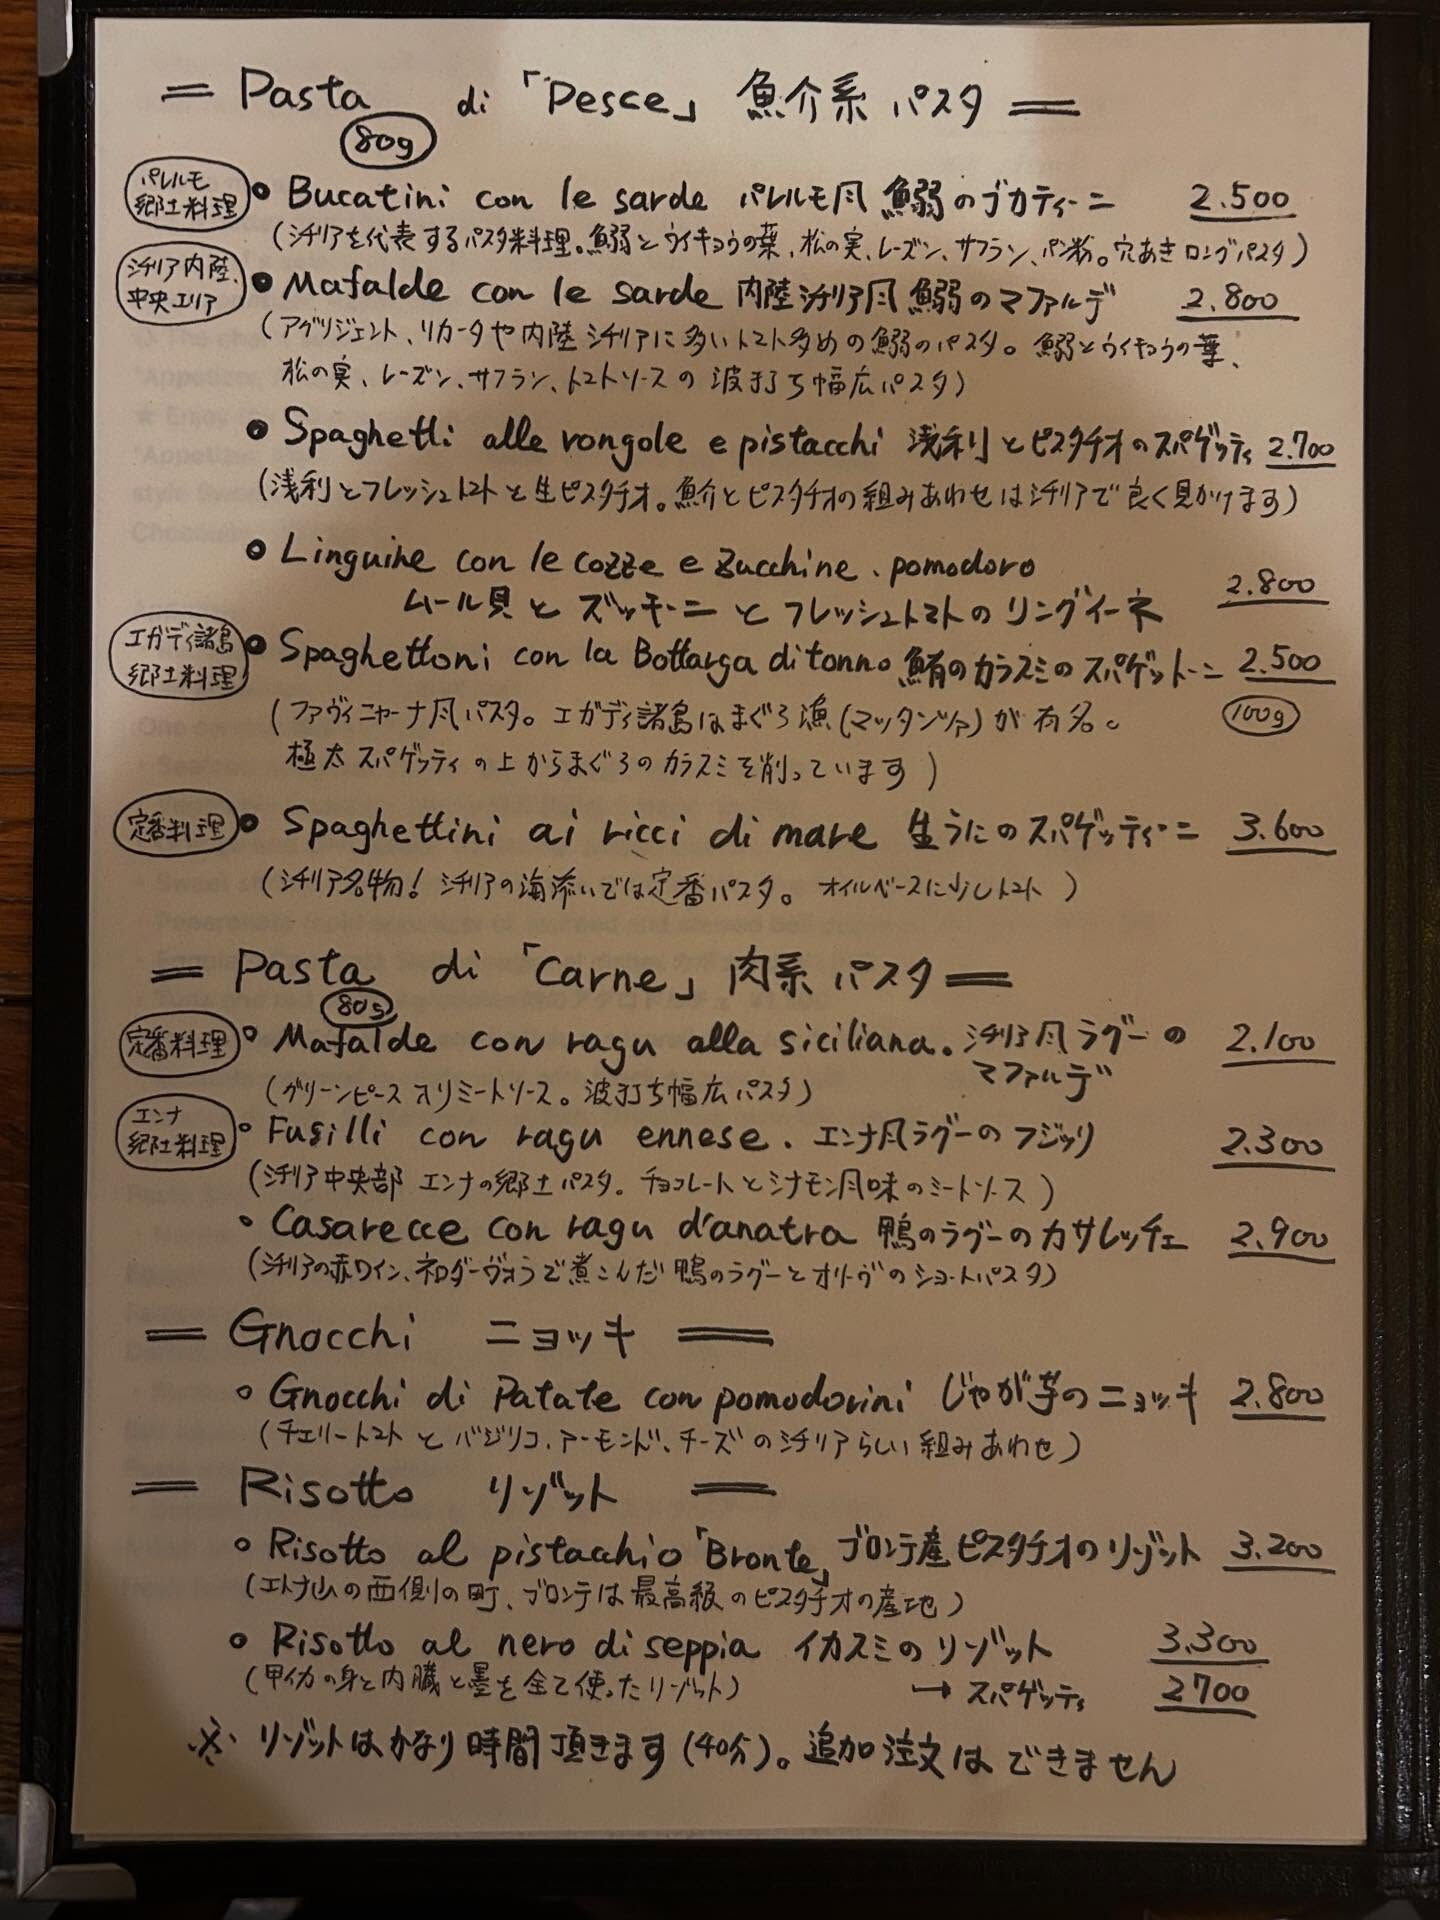 = Pasta di「Pesce」魚介系 パスタ =
80g
パレルモ
郷土料理
• Bucatini con le sarde パレルモ風 鰯のブカティーニ 2.500
(シチリアを代表するパスタ料理。鰯とウイキョウの葉、松の実、レーズン、サフラン、パン粉。穴あきロングパスタ)
シチリア内陸、
中央エリア
• Mafalde con le sarde 内陸シチリア風 鰯のマファルデ 2.800
(アグリジェント、リカータや内陸シチリアに多いトマト多めの鰯のパスタ。鰯とウイキョウの葉、
松の実、レーズン、サフラン、トマトソースの波打ち幅広パスタ)
• Spaghetti alle vongole e pistacchi 浅利とピスタチオのスパゲッティ 2.700
(浅利とフレッシュトマトと生ピスタチオ。魚介とピスタチオの組みあわせはシチリアで良く見かけます)
• Linguine con le cozze e zucchine、pomodoro
ムール貝とズッキーニとフレッシュトマトのリングイーネ 2.800
エガディ諸島
郷土料理
• Spaghettoni con la Bottarga di tonno 鮪のカラスミのスパゲットーニ 2.500
(ファヴィニャーナ風パスタ。エガディ諸島はまぐろ漁(マッタンツァ)が有名。 100g
極太スパゲッティの上からまぐろのカラスミを削っています)
定番料理
• Spaghettini ai ricci di mare 生うにのスパゲッティーニ 3.600
(シチリア名物! シチリアの海添いでは定番パスタ。オイルベースに少しトマト)
= Pasta di「Carne」肉系パスタ =
80g
定番料理
• Mafalde con ragu alla siciliana. シチリア風ラグーの 2.100
マファルデ
(グリーンピース入りミートソース。波打ち幅広パスタ)
エンナ
郷土料理
• Fusilli con ragu ennese. エンナ風ラグーのフジッリ 2.300
(シチリア中央部 エンナの郷土パスタ。チョコレートとシナモン風味のミートソース)
• Casarecce con ragu d'anatra 鴨のラグーのカサレッチェ 2.900
(シチリアの赤ワイン、ネロダーヴォラで煮こんだ鴨のラグーとオリーヴのショートパスタ)
= Gnocchi ニョッキ =
• Gnocchi di Patate con pomodorini じゃが芋のニョッキ 2.800
(チェリートマトとバジリコ、アーモンド、チーズのシチリアらしい組みあわせ)
= Risotto リゾット =
• Risotto al pistacchio「Bronte」ブロンテ産ピスタチオのリゾット 3.200
(エトナ山の西側の町、ブロンテは最高級のピスタチオの産地)
• Risotto al nero di seppia イカスミのリゾット 3.300
(甲イカの身と内臓と墨を全て使ったリゾット) → スパゲッティ 2700
※ リゾットはかなり時間頂きます(40分)。追加注文はできません